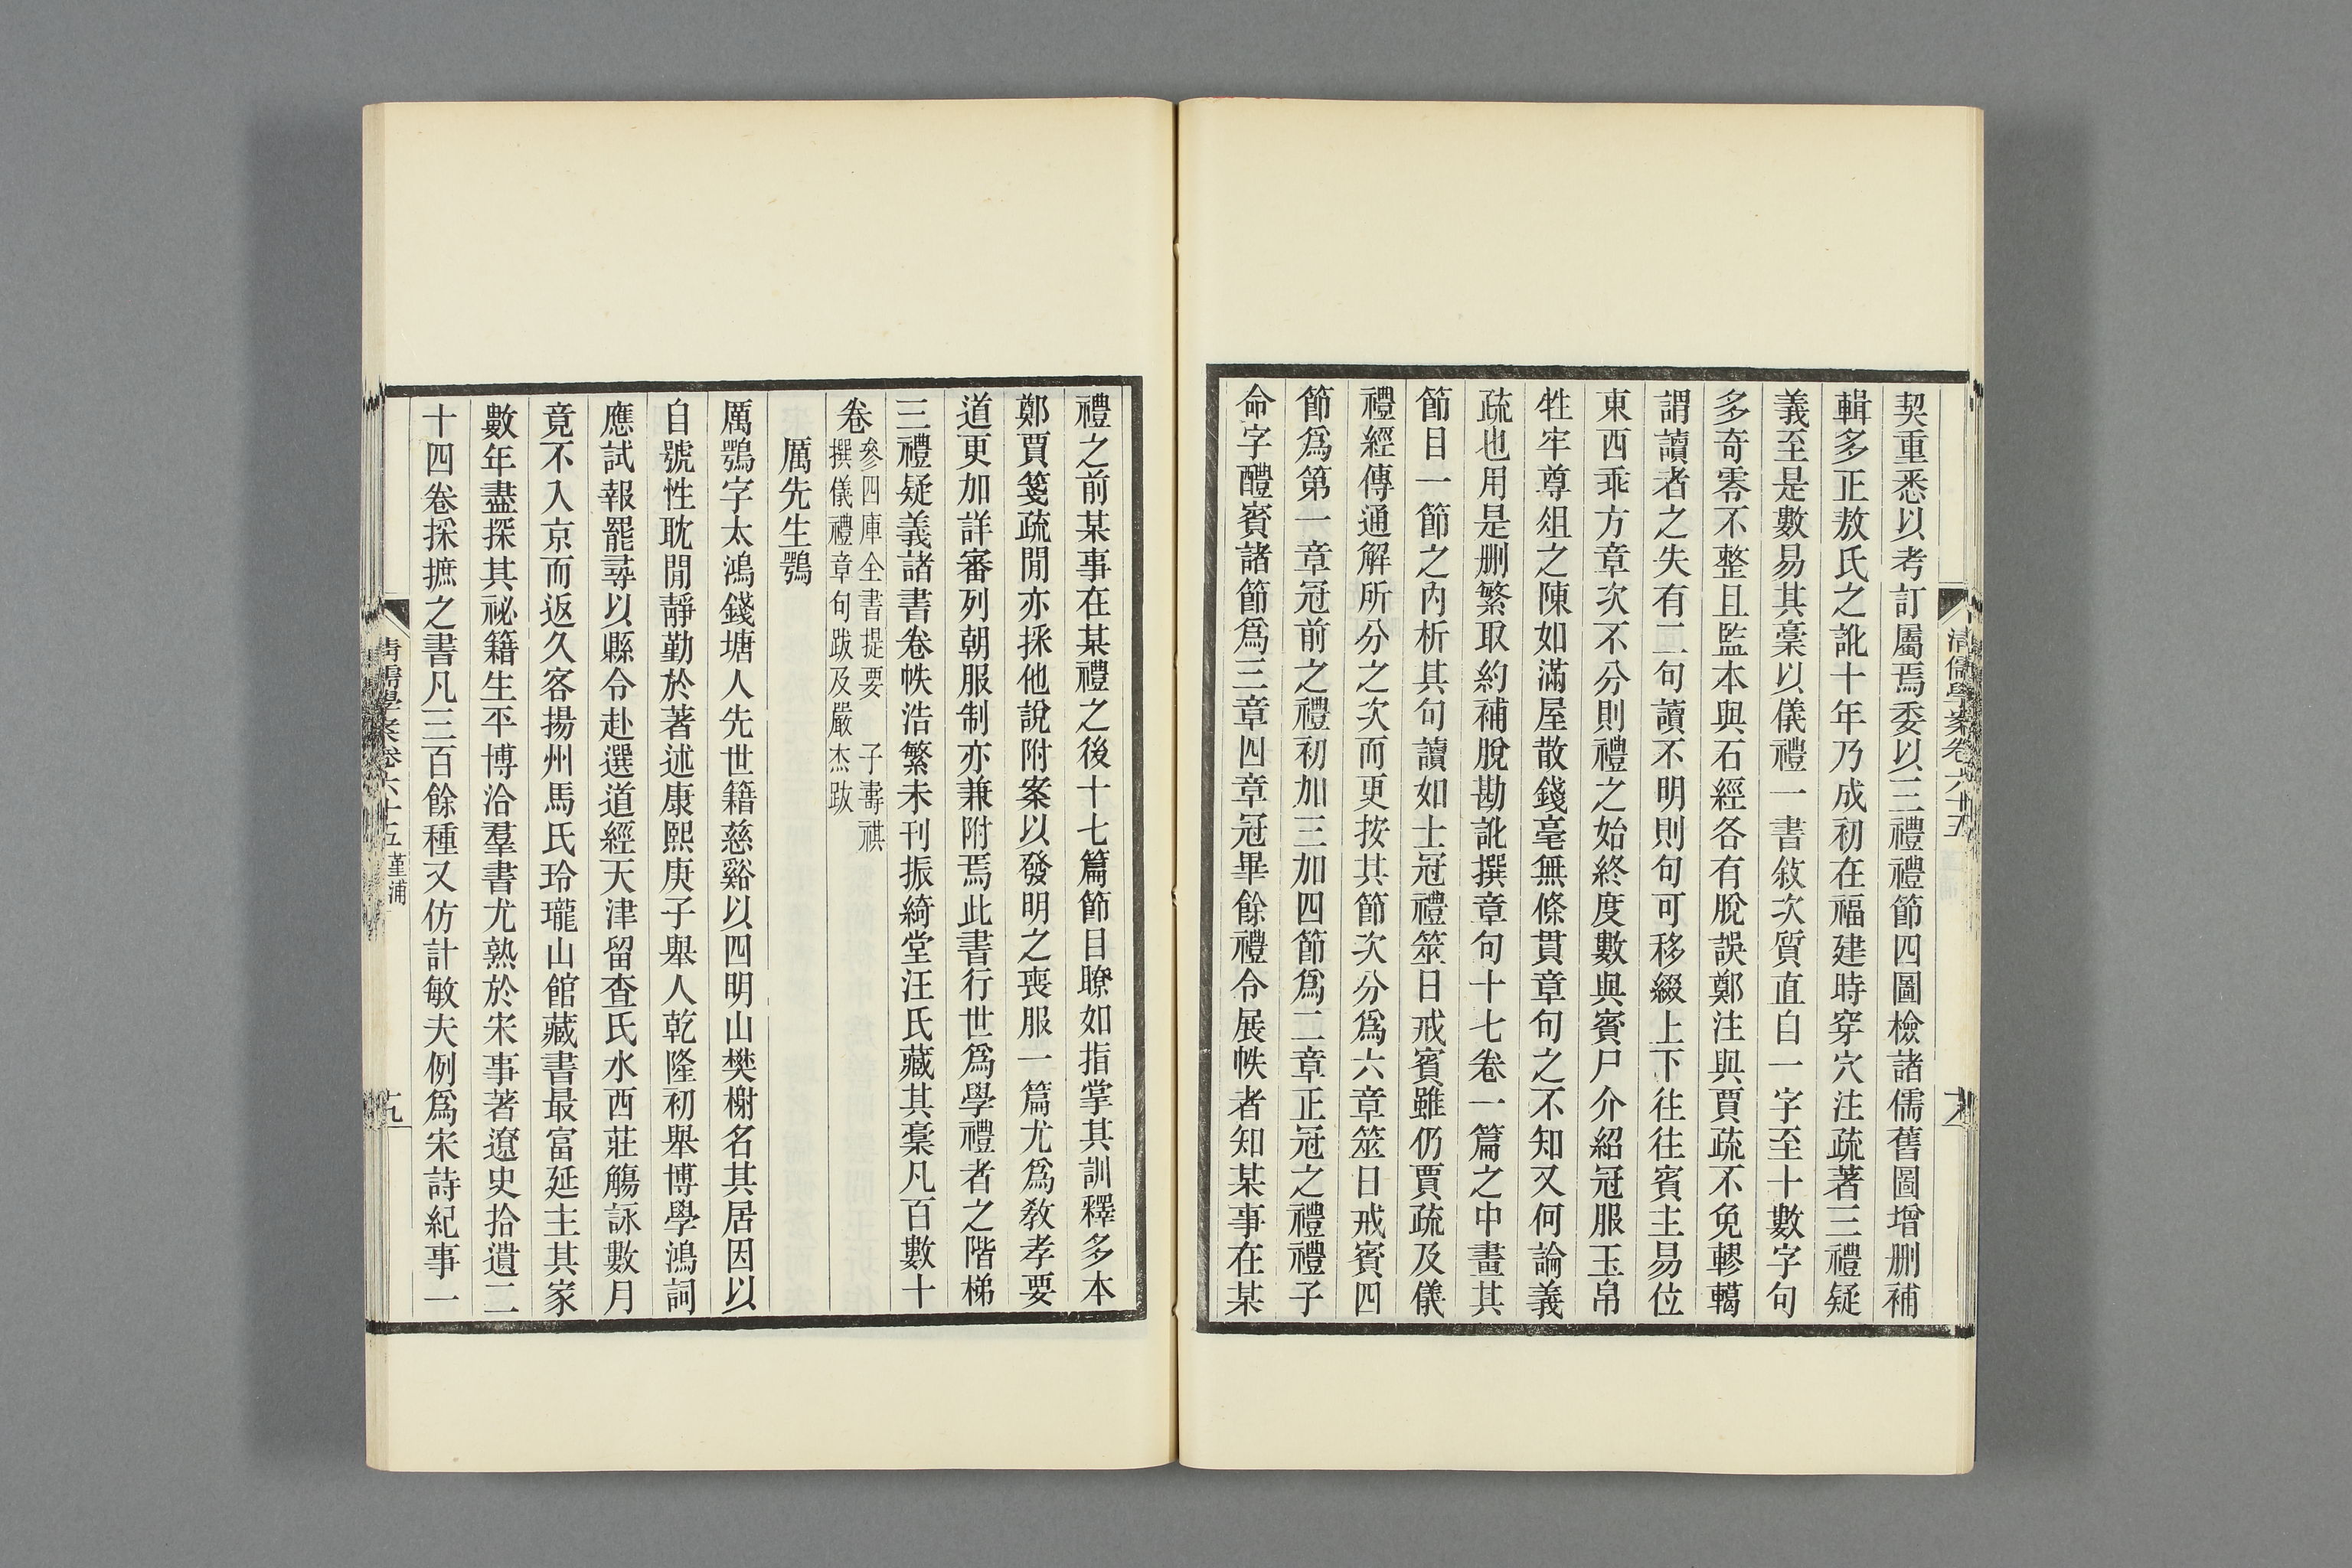 清儒學案卷六十五
契重悉以考訂屬焉委以三禮禮節四圖檢諸儒舊圖增删補
輯多正敖氏之訛十年乃成初在福建時穿穴注疏著三禮疑
義至是數易其稾以儀禮一書敘次質直自一字至十數字句
多奇零不整且監本與石經各有脫誤鄭注與賈疏不免轇轕
謂讀者之失有二句讀不明則句可移綴上下往往賓主易位
東西乖方章次不分則禮之始終度數與賓尸介紹冠服玉帛
牲牢尊俎之陳如滿屋散錢毫無條貫章句之不知又何論義
疏也用是删繁取約補脫勘訛撰章句十七卷一篇之中畫其
節目一節之內析其句讀如士冠禮筮日戒賓雖仍賈疏及儀
禮經傳通解所分之次而更按其節次分爲六章筮日戒賓四
節爲第一章冠前之禮初加三加四節爲二章正冠之禮禮子
命字醴賓諸節爲三章四章冠畢餘禮令展帙者知某事在某
禮之前某事在某禮之後十七篇節目瞭如指掌其訓釋多本
鄭賈箋疏閒亦採他說附案以發明之喪服一篇尤爲敎孝要
道更加詳審列朝服制亦兼附焉此書行世爲學禮者之階梯
三禮疑義諸書卷帙浩繁未刊振綺堂汪氏藏其稾凡百數十
卷參四庫全書提要 子壽祺
撰儀禮章句跋及嚴杰跋
厲先生鶚
厲鶚字太鴻錢塘人先世籍慈谿以四明山樊榭名其居因以
自號性耽閒靜勤於著述康熙庚子舉人乾隆初舉博學鴻詞
應試報罷尋以縣令赴選道經天津留查氏水西莊觴詠數月
竟不入京而返久客揚州馬氏玲瓏山館藏書最富延主其家
數年盡探其祕籍生平博洽羣書尤熟於宋事著遼史拾遺二
十四卷採摭之書凡三百餘種又仿計敏夫例爲宋詩紀事一
清儒學案卷六十五 堇浦
十九